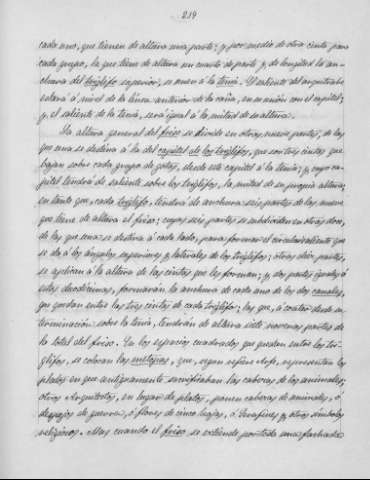 219
cada uno, que tienen de altura una parte; y por medio de otra cinta para
cada grupo, la que tiene de altura un cuarto de parte y de longitud la an-
chura del triglifo superior, se unen á la tenia. El saliente del arquitrabe
estará á nivel de la línea anterior de la caña, en union con el capitel;
y el saliente de la tenia, será igual á la mitad de su altura.
La altura general del friso se divide en otras nueve partes, de las
que una se destina á la del capitel de los triglifos, que son tres cintas que
bajan sobre cada grupo de gotas, desde este capitel á la tenia; y cuyo ca-
pitel tendrá de saliente sobre los triglifos, la mitad de su propia altura;
en tanto que, cada triglifo, tendrá de anchura seis partes de las nueve
que tiene de altura el friso; cuyas seis partes se subdividen en otras doce,
de las que una se destina á cada lado, para formar el
se dá á los ángulos superiores y laterales de los triglifos; otras seis partes,
se aplican á la altura de las cintas que les forman; y dos partes iguales á
estas duodécimas, formarán la anchura de cada uno de los dos canales,
que quedan entre las tres cintas de cada triglifo; las que, á contar desde su
terminación sobre la tenia, tendrán de altura siete novenas partes de
la total del friso. En los espacios cuadrados que quedan entre los tri-
glifos, se colocan las metopas, que, segun refiere Arfe, representan los
platos en que antiguamente sacrificaban las cabezas de los animales;
otros Arquitectos, en lugar de platos, ponen cabezas de animales, ó
despojos de guerra, ó flores de cinco hojas, ó Serafines y otros símbolos
religiosos. Mas cuando el friso, se extiende por toda una fachada